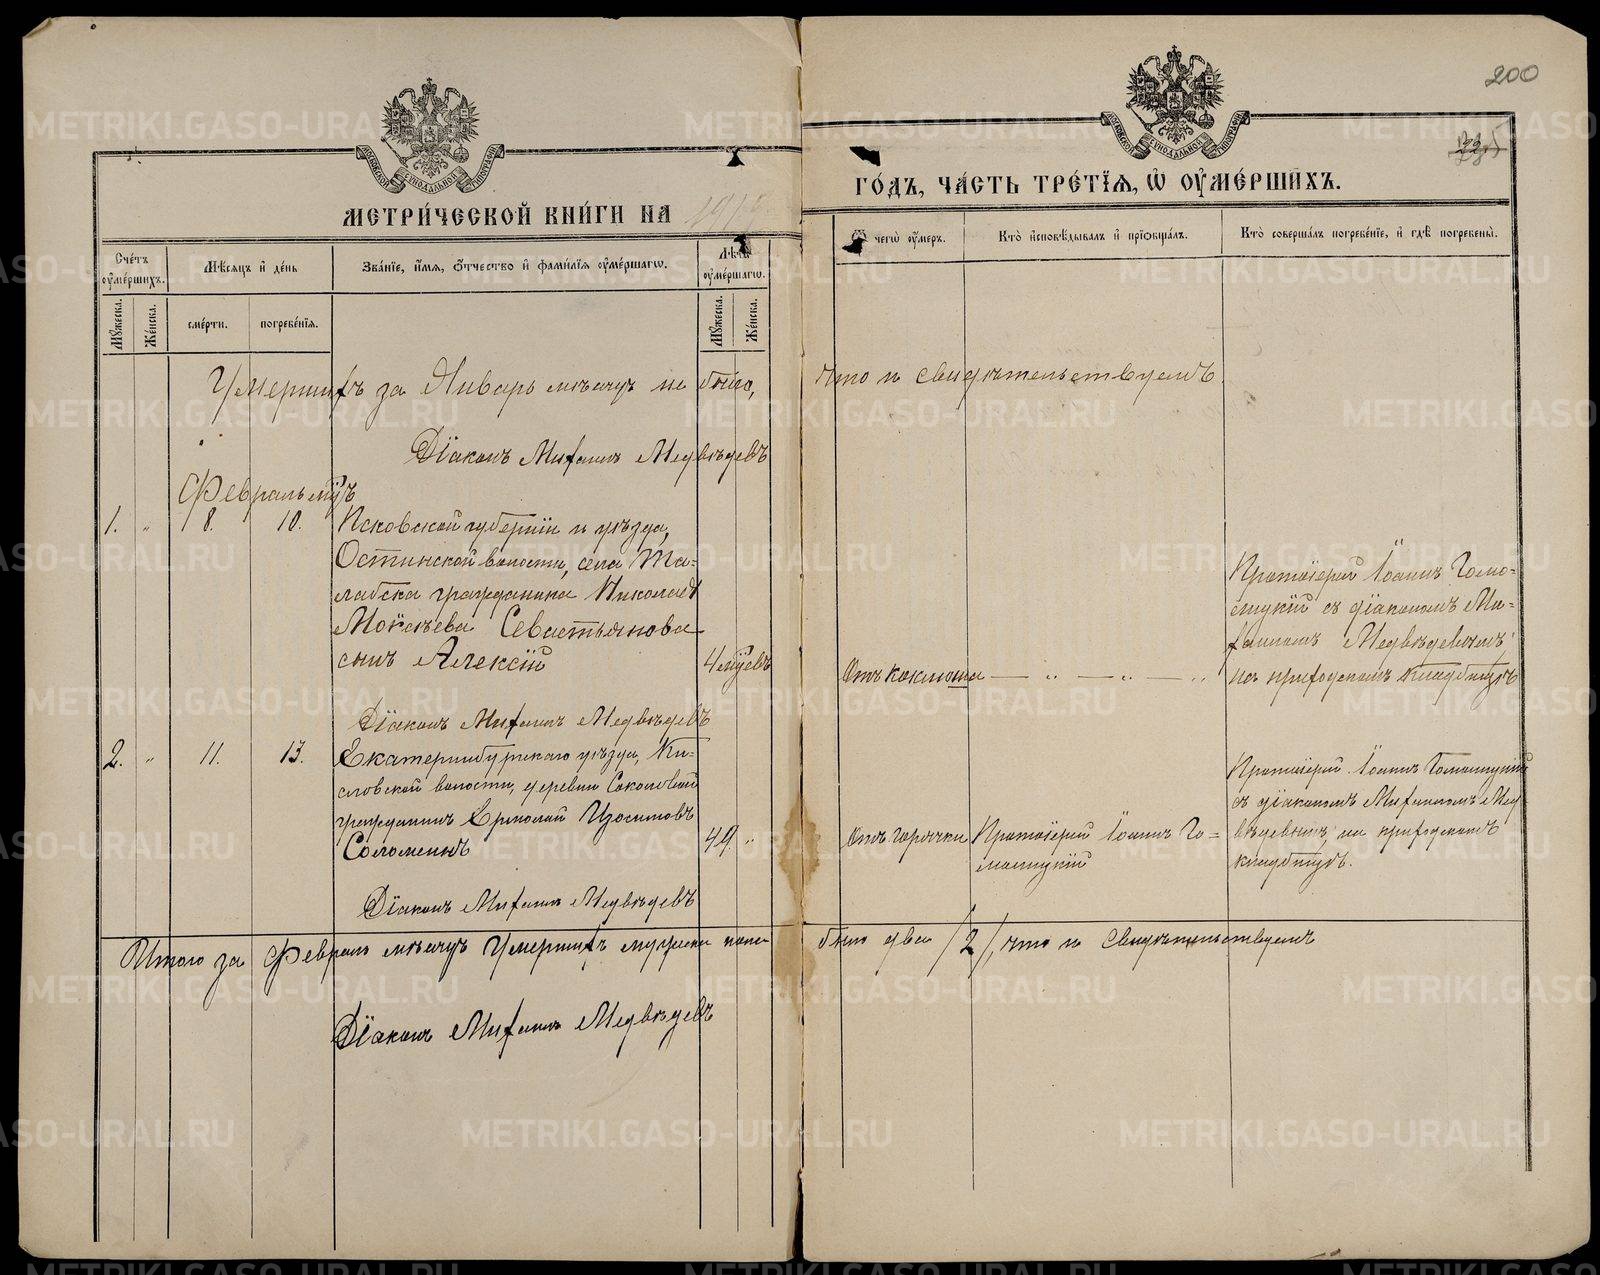 200
МОСКОВСКОЙ СѴНОДАЛЬНОЙ ТИПОГРАФІИ
МОСКОВСКОЙ СѴНОДАЛЬНОЙ ТИПОГРАФІИ
МЕТРИ́ЧЕСКОЙ КНИ́ГИ НА
ГО́ДЪ, ЧА́СТЬ ТРЕ́ТЇѦ, Ѡ҆ ОУ҆МЕ́РШИХЪ.
Сче́тъ оу҆ме́ршихъ.
Мꙋжеска.
Же́нска.
Мѣ́сѧцъ и҆ де́нь
сме́рти.
погребе́нїѧ.
Зва́нїе, и҆́мѧ, ѻ҆́тчество и҆ фами́лїѧ оу҆ме́ршагѡ.
Лѣ́та оу҆ме́ршагѡ.
Мꙋжеска.
Же́нска.
Ѿ чегѡ̀ оу҆́меръ.
Кто̀ и҆сповѣ́дывалъ и҆ прїѡбща́лъ.
Кто̀ соверша́лъ погребе́нїе, и҆ гдѣ̀ погребены̀.
Умершихъ за Январь мѣсяцъ не было, что и свидѣтельствуемъ.
Діаконъ Михаилъ Медвѣдевъ
Февраль м-цъ
1. „ 8. 10. Псковской губерніи и уѣзда,
Остинской волости, села Та-
лабска гражданина Николая
Моксѣева Севастьянова
сынъ Алексій
4 м-цевъ
Отъ коклюша — „ — „ — „
Протоіерей Іоаннъ Голо-
мцкій съ діакономъ Ми-
хаиломъ Медвѣдевымъ,
на приходскомъ кладбищѣ
Діаконъ Михаилъ Медвѣдевъ
2. „ 11. 13. Екатеринбургскаго уѣзда, Ки-
словской волости, деревни Соколовой
гражданинъ Ермолай Изосимовъ
Соломеинъ
49. „
Отъ горячки
Протоіерей Іоаннъ
Протоіерей Іоаннъ
съ діакономъ Михаиломъ Мед-
вѣдевымъ, на приходскомъ
кладбищѣ.
Діаконъ Михаилъ Медвѣдевъ
Итого за Февраль мѣсяцъ Умершихъ мужеска пола было два /2/, что и свидѣтельствуемъ
Діаконъ Михаилъ Медвѣдевъ
METRIKI.GASO-URAL.RU